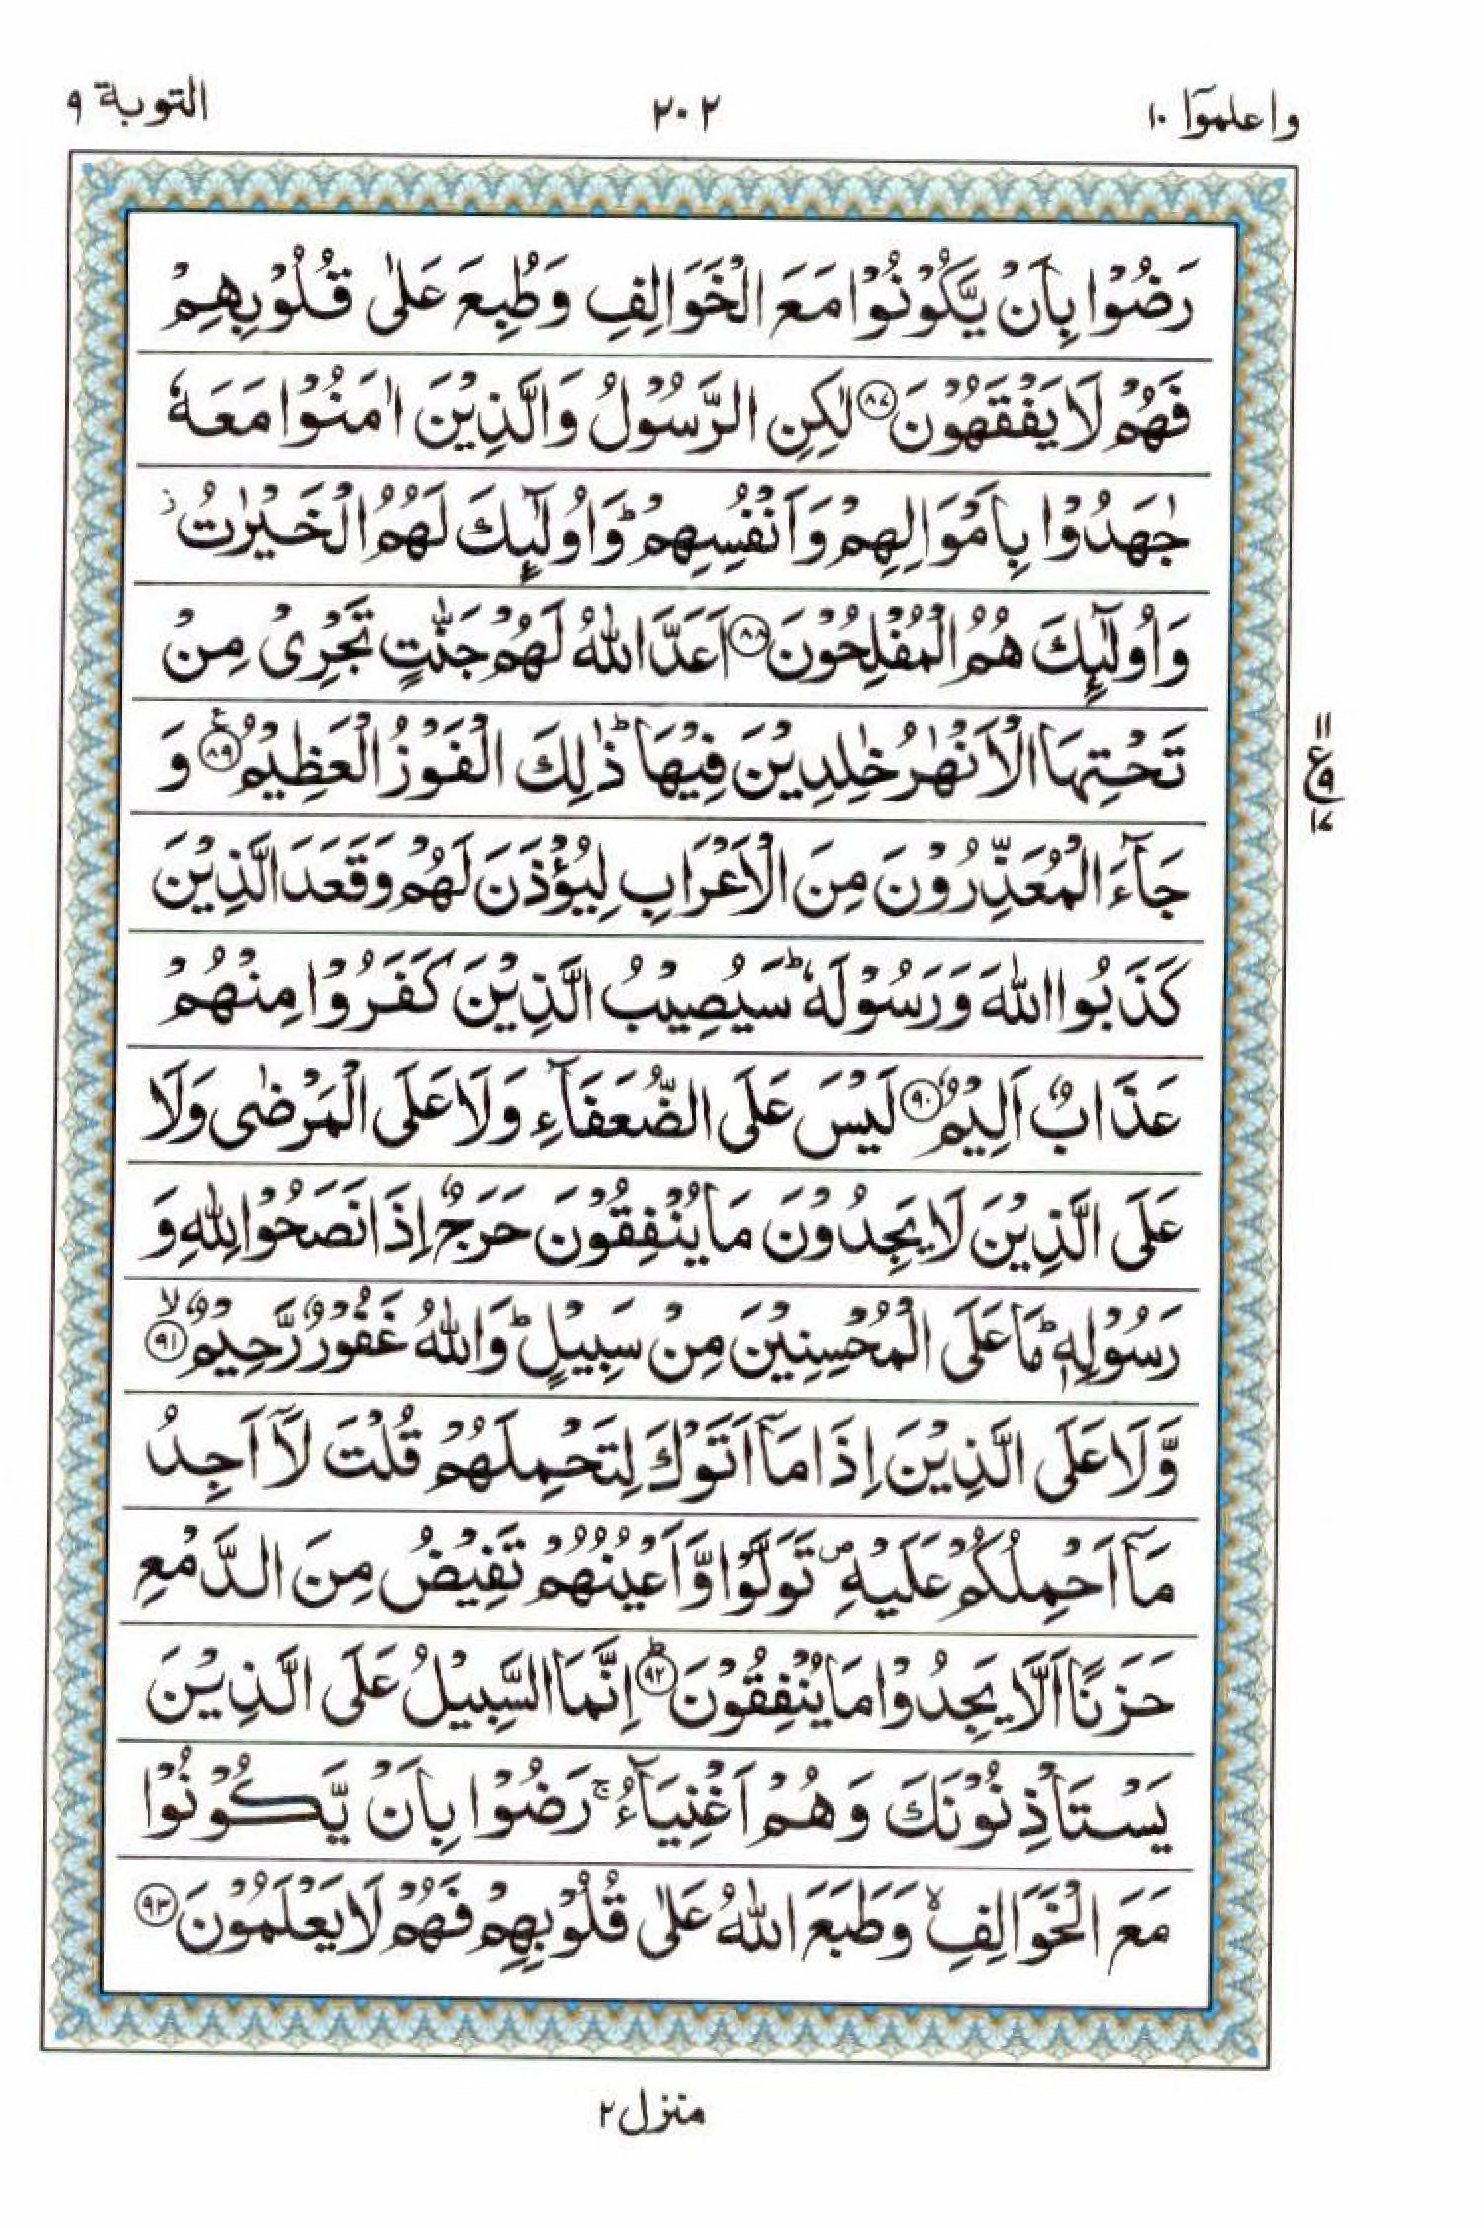 واعلموٓا ١٠
٢٠٢
التوبة ٩
رَضُوْا بِاَنْ يَّكُوْنُوْا مَعَ الْخَوَالِفِ وَطُبِعَ عَلٰى قُلُوْبِهِمْ
فَهُمْ لَا يَفْقَهُوْنَ ۝٨٧ لٰكِنِ الرَّسُوْلُ وَالَّذِيْنَ اٰمَنُوْا مَعَهٗ
جٰهَدُوْا بِاَمْوَالِهِمْ وَاَنْفُسِهِمْ ؕ وَاُولٰٓئِكَ لَهُمُ الْخَيْرٰتُ ز
وَاُولٰٓئِكَ هُمُ الْمُفْلِحُوْنَ ۝٨٨ اَعَدَّ اللّٰهُ لَهُمْ جَنّٰتٍ تَجْرِىْ مِنْ
تَحْتِهَا الْاَنْهٰرُ خٰلِدِيْنَ فِيْهَا ؕ ذٰلِكَ الْفَوْزُ الْعَظِيْمُ ۝٨٩ ع وَ
جَآءَ الْمُعَذِّرُوْنَ مِنَ الْاَعْرَابِ لِيُؤْذَنَ لَهُمْ وَقَعَدَ الَّذِيْنَ
كَذَبُوا اللّٰهَ وَرَسُوْلَهٗ ؕ سَيُصِيْبُ الَّذِيْنَ كَفَرُوْا مِنْهُمْ
عَذَابٌ اَلِيْمٌ ۝٩٠ لَيْسَ عَلَى الضُّعَفَآءِ وَلَا عَلَى الْمَرْضٰى وَلَا
عَلَى الَّذِيْنَ لَا يَجِدُوْنَ مَا يُنْفِقُوْنَ حَرَجٌ اِذَا نَصَحُوْا لِلّٰهِ وَ
رَسُوْلِهٖ ؕ مَا عَلَى الْمُحْسِنِيْنَ مِنْ سَبِيْلٍ ؕ وَاللّٰهُ غَفُوْرٌ رَّحِيْمٌ ۝٩١ ۙ
وَّلَا عَلَى الَّذِيْنَ اِذَا مَآ اَتَوْكَ لِتَحْمِلَهُمْ قُلْتَ لَآ اَجِدُ
مَآ اَحْمِلُكُمْ عَلَيْهِ ص تَوَلَّوْا وَّاَعْيُنُهُمْ تَفِيْضُ مِنَ الدَّمْعِ
حَزَنًا اَلَّا يَجِدُوْا مَا يُنْفِقُوْنَ ۝٩٢ ؕ اِنَّمَا السَّبِيْلُ عَلَى الَّذِيْنَ
يَسْتَاْذِنُوْنَكَ وَهُمْ اَغْنِيَآءُ ۚ رَضُوْا بِاَنْ يَّكُوْنُوْا
مَعَ الْخَوَالِفِ ۙ وَطَبَعَ اللّٰهُ عَلٰى قُلُوْبِهِمْ فَهُمْ لَا يَعْلَمُوْنَ ۝٩٣
١١
ع ٩
١٧
منزل ٢